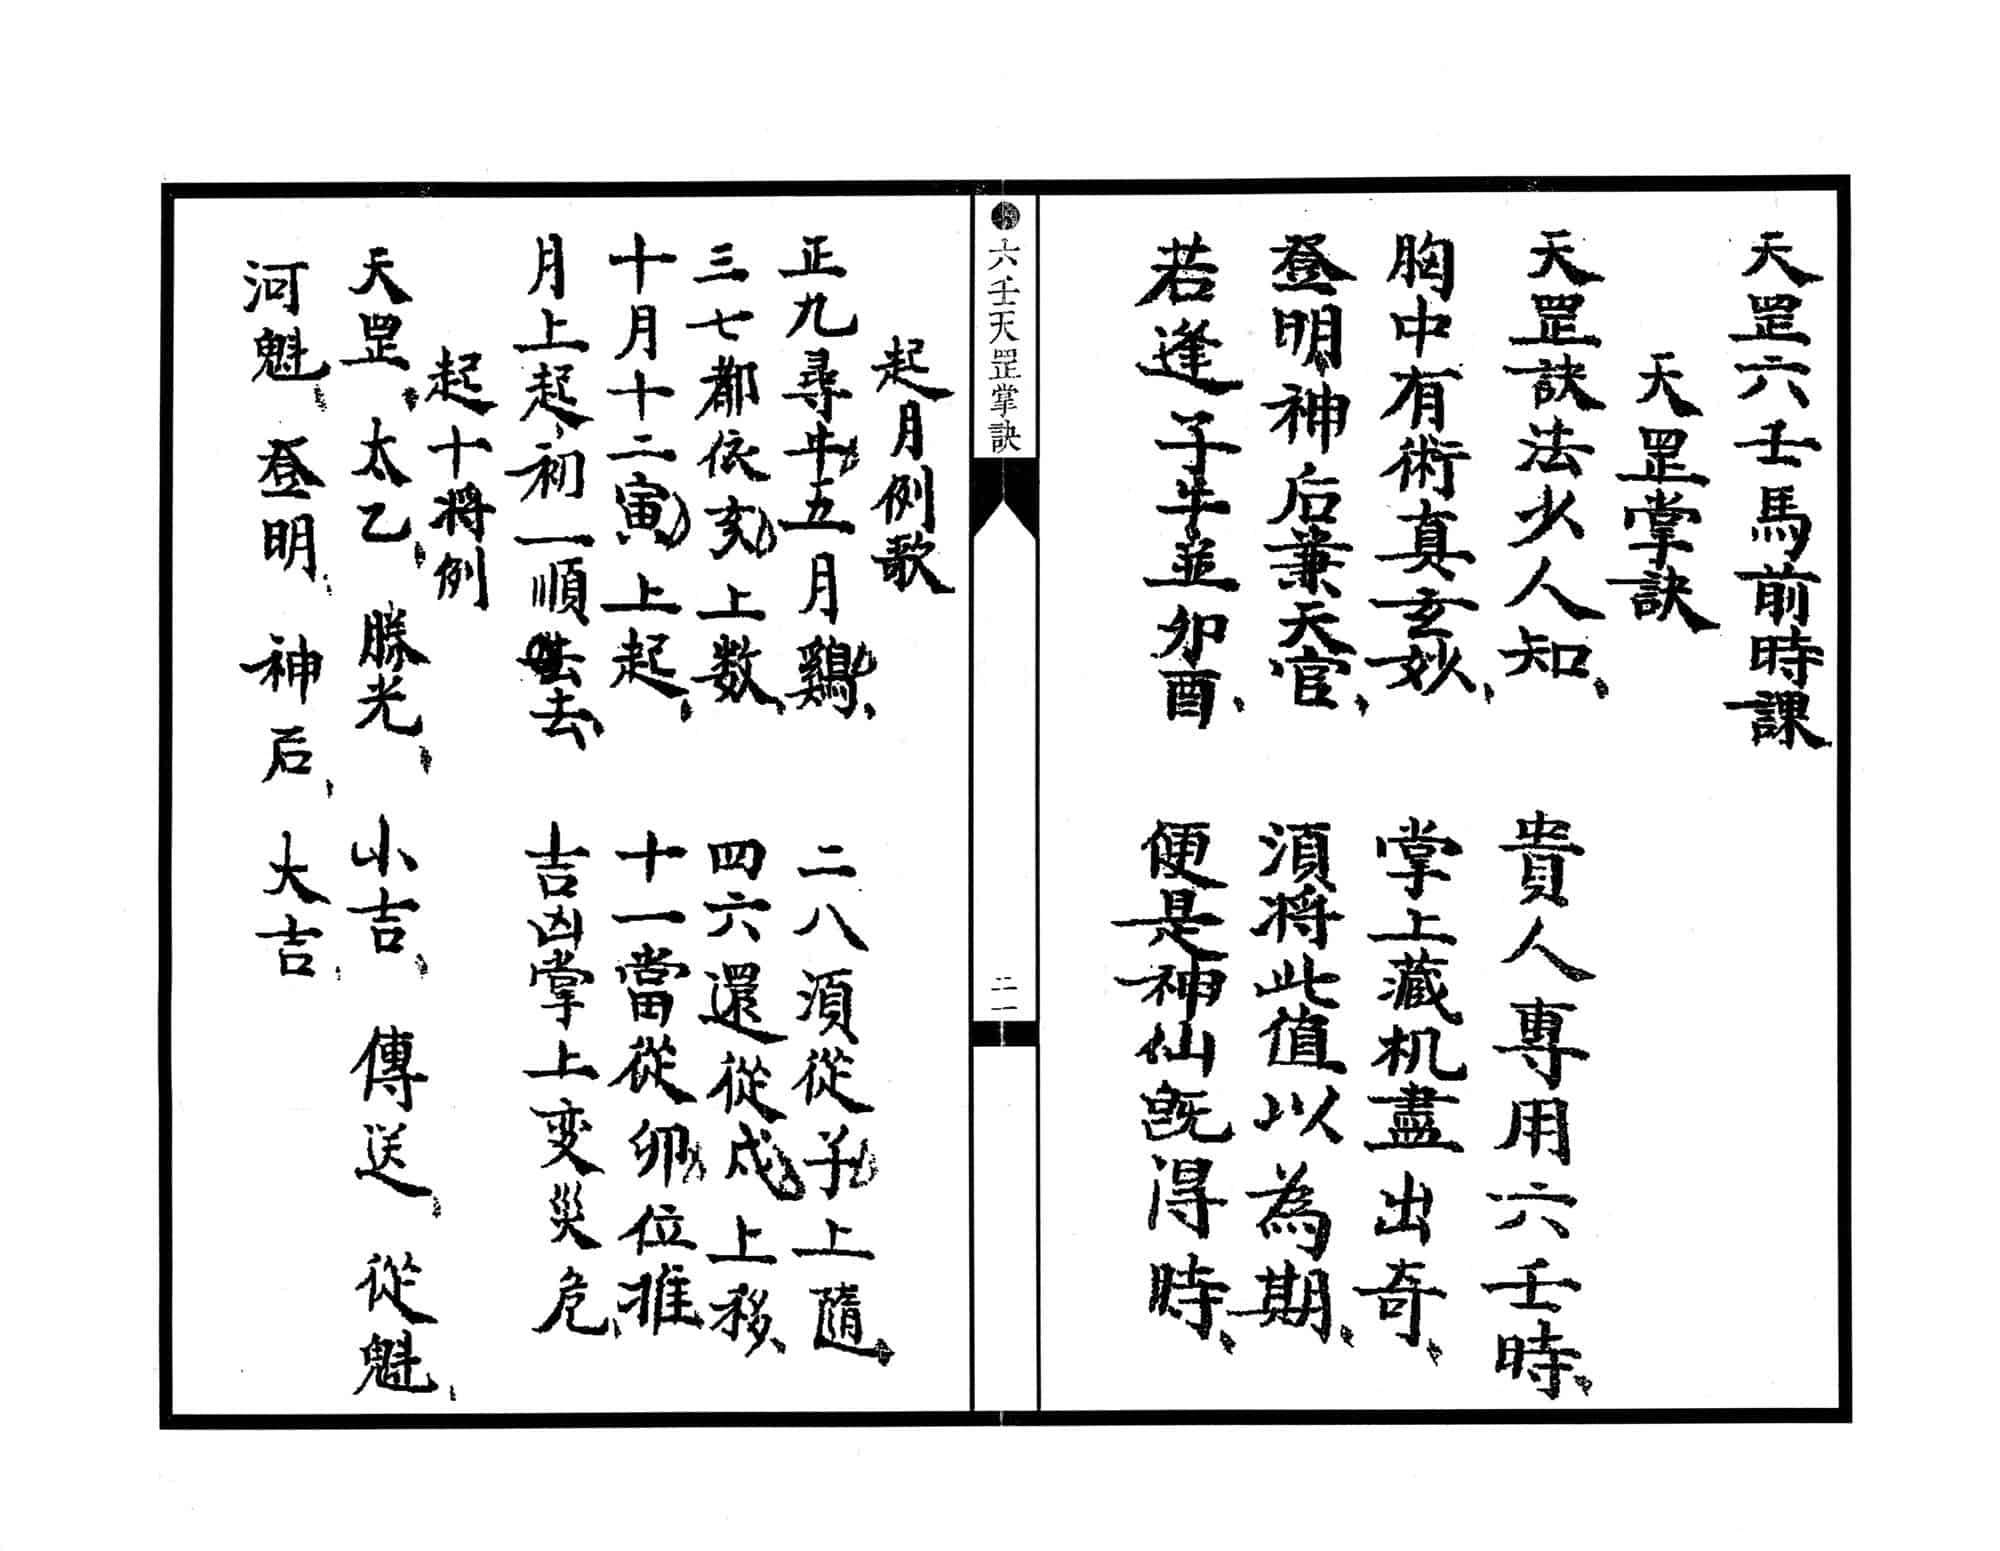 天罡六壬馬前時課
天罡掌訣
天罡訣法少人知 貴人專用六壬時
胸中有術真玄妙 掌上藏机盡出奇
登明神后兼天官 須將此值以為期
若逢子午並卯酉 便是神仙既得時
六壬天罡掌訣
二一
起月例歌
正九尋牛五月鷄 二八須從子上隨
三七都依亥上数 四六還從戍上移
十月十二寅上起 十一當從卯位推
月上起初一順去 吉凶掌上変災危
起十將例
天罡 太乙 勝光 小吉 傳送 從魁
河魁 登明 神后 大吉